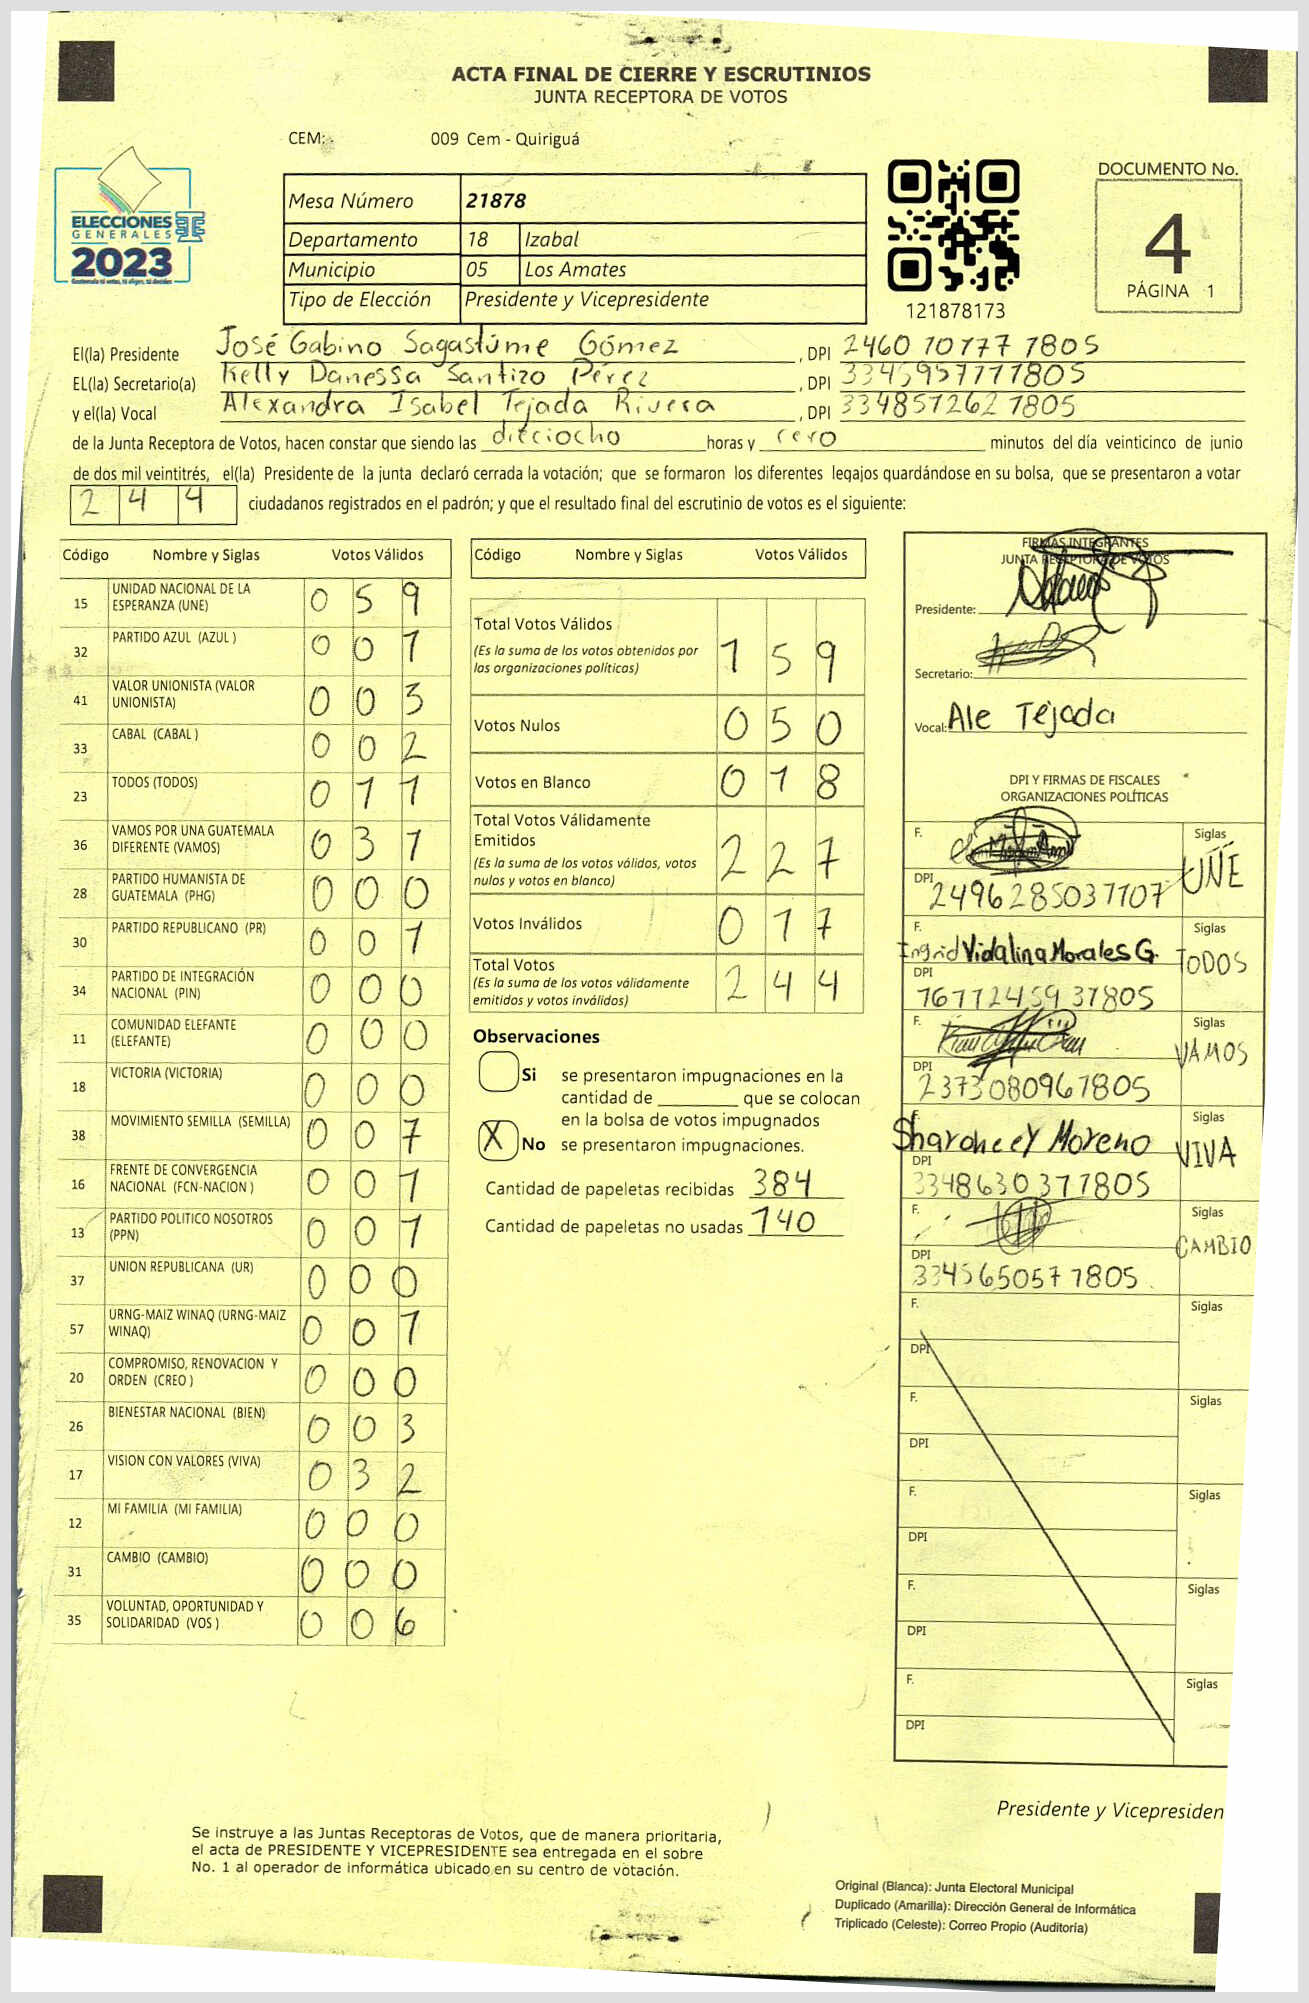 ACTA FINAL DE CIERRE Y ESCRUTINIOS
JUNTA RECEPTORA DE VOTOS
CEM: 009 Cem - Quiriguá
ELECCIONES
GENERALES
2023
Mesa Número 21878
Departamento 18 Izabal
Municipio 05 Los Amates
Tipo de Elección Presidente y Vicepresidente
121878173
DOCUMENTO No.
4
PÁGINA 1
El(la) Presidente José Gabino Sagastúme Gómez, DPI 2460 10777 1805
EL(la) Secretario(a) Kelly Danessa Santizo Pérez, DPI 3345957771805
y el(la) Vocal Alexandra Isabel Tejada Rivera, DPI 334857262 1805
de la Junta Receptora de Votos, hacen constar que siendo las dieciocho horas y cero minutos del día veinticinco de junio
de dos mil veintitrés, el(la) Presidente de la junta declaró cerrada la votación; que se formaron los diferentes legajos quardándose en su bolsa, que se presentaron a votar
244 ciudadanos registrados en el padrón; y que el resultado final del escrutinio de votos es el siguiente:
Código Nombre y Siglas Votos Válidos
15 UNIDAD NACIONAL DE LA ESPERANZA (UNE) 0 5 9
32 PARTIDO AZUL (AZUL ) 0 0 1
41 VALOR UNIONISTA (VALOR UNIONISTA) 0 0 3
33 CABAL (CABAL ) 0 0 2
23 TODOS (TODOS) 0 1 1
36 VAMOS POR UNA GUATEMALA DIFERENTE (VAMOS) 0 3 1
28 PARTIDO HUMANISTA DE GUATEMALA (PHG) 0 0 0
30 PARTIDO REPUBLICANO (PR) 0 0 1
34 PARTIDO DE INTEGRACIÓN NACIONAL (PIN) 0 0 0
11 COMUNIDAD ELEFANTE (ELEFANTE) 0 0 0
18 VICTORIA (VICTORIA) 0 0 0
38 MOVIMIENTO SEMILLA (SEMILLA) 0 0 7
16 FRENTE DE CONVERGENCIA NACIONAL (FCN-NACION ) 0 0 1
13 PARTIDO POLITICO NOSOTROS (PPN) 0 0 1
37 UNION REPUBLICANA (UR) 0 0 0
57 URNG-MAIZ WINAQ (URNG-MAIZ WINAQ) 0 0 1
20 COMPROMISO, RENOVACION Y ORDEN (CREO ) 0 0 0
26 BIENESTAR NACIONAL (BIEN) 0 0 3
17 VISION CON VALORES (VIVA) 0 3 2
12 MI FAMILIA (MI FAMILIA) 0 0 0
31 CAMBIO (CAMBIO) 0 0 0
35 VOLUNTAD, OPORTUNIDAD Y SOLIDARIDAD (VOS ) 0 0 6
Código Nombre y Siglas Votos Válidos
Total Votos Válidos 1 5 9
(Es la suma de los votos obtenidos por
las organizaciones políticas)
Votos Nulos 0 5 0
Votos en Blanco 0 1 8
Total Votos Válidamente
Emitidos 2 2 7
(Es la suma de los votos válidos, votos
nulos y votos en blanco)
Votos Inválidos 0 1 7
Total Votos 2 4 4
(Es la suma de los votos válidamente
emitidos y votos inválidos)
Observaciones
Si se presentaron impugnaciones en la
cantidad de ________ que se colocan
en la bolsa de votos impugnados
X No se presentaron impugnaciones.
Cantidad de papeletas recibidas 384
Cantidad de papeletas no usadas 140
FIRMAS INTEGRANTES
JUNTA RECEPTORA DE VOTOS
Presidente:
Secretario:
Vocal: Ale Tejada
DPI Y FIRMAS DE FISCALES
ORGANIZACIONES POLÍTICAS
F. Siglas
DPI 2496285037107 UNE
F. Ingrid Vidalina Morales G. Siglas
DPI 1677245937805 TODOS
F. Siglas
DPI 2373080961805 VAMOS
F. Sharoneey Moreno Siglas
DPI 3348630371805 VIVA
F. Siglas
DPI 3345650571805 CAMBIO
F. Siglas
DPI
F. Siglas
DPI
F. Siglas
DPI
F. Siglas
DPI
F. Siglas
DPI
Presidente y Vicepresiden
Se instruye a las Juntas Receptoras de Votos, que de manera prioritaria,
el acta de PRESIDENTE Y VICEPRESIDENTE sea entregada en el sobre
No. 1 al operador de informática ubicado en su centro de votación.
Original (Blanca): Junta Electoral Municipal
Duplicado (Amarilla): Dirección General de Informática
Triplicado (Celeste): Correo Propio (Auditoría)